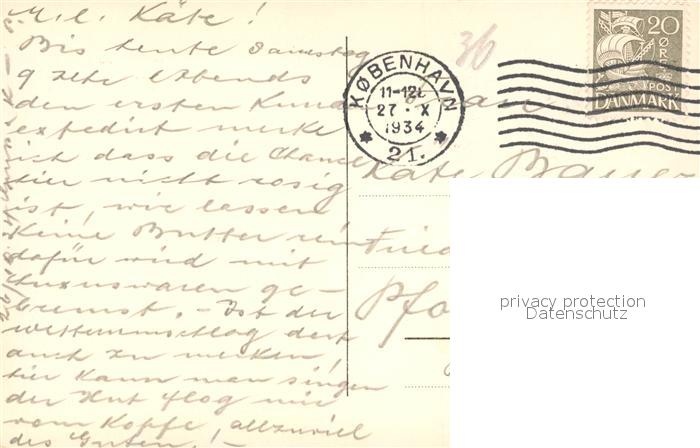 M. l. Käte!
Bis heute Samstag
9 Uhr Abends
den ersten Kund
expedirt merke
ich dass die Chancen
hier nicht rosig
ist, wie lassen
keine Butter rein
dafür wird mit
Luxuswaren ge-
bremst. - Ist der
Wetterumschlag dort
auch zu merken!
hier kann man singen
der Hut flog mir
vom Kopfe, allzuviel
des Guten! -
36
KØBENHAVN
11-12
27 X
1934
* 21. *
20
ØRE
POST
DANMARK
Käte Bauer
Fried
Pfo
privacy protection
Datenschutz